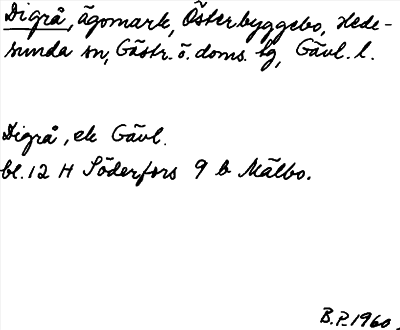 Digrå, ägomark, Österbyggebo, Hede-
sunda sn, Gästr. ö. doms. tg, Gävl. l.
Digrå, ek Gävl.
bl. 12 H Söderfors 9 b Mälbo.
B.P. 1960.